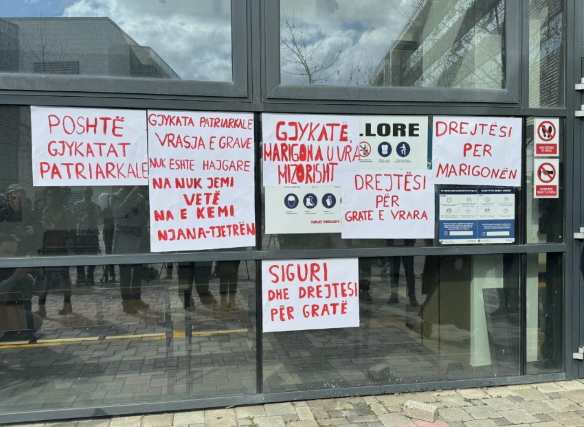 POSHTË
GJYKATAT
PATRIARKALE
GJYKATA PATRIARKALE
VRASJA E GRAVE
NUK ËSHTË HAJGARE
NA NUK JEMI
VETË
NA E KEMI
NJANA-TJETRËN
GJYKATË
MARIGONA U VRA
MIZORISHT
LLORE
DREJTËSI
PËR
GRATË E VRARA
DREJTËSI
PËR
MARIGONËN
SIGURI
DHE DREJTËSI
PËR GRATË